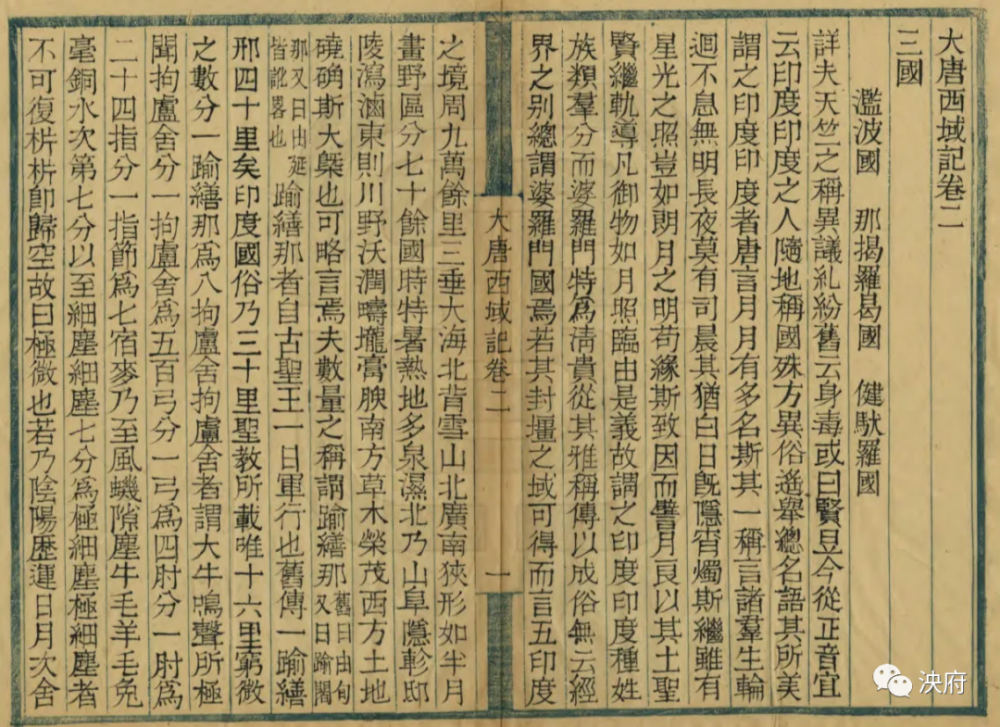 大唐西域記卷二
三國
濫波國　那揭羅曷國　健馱羅國
詳夫天竺之稱異議糺紛舊云身毒或曰賢豆今從正音宜
云印度印度之人隨地稱國殊方異俗遙舉總名語其所美
謂之印度印度者唐言月月有多名斯其一稱言諸羣生輪
迴不息無明長夜莫有司晨其猶白日旣隱宵燭斯繼雖有
星光之照豈如朗月之明苟緣斯致因而譬月良以其土聖
賢繼軌導凡御物如月照臨由是義故謂之印度印度種姓
族類羣分而婆羅門特爲淸貴從其雅稱傳以成俗無云經
界之别總謂婆羅門國焉若其封壃之域可得而言五印度
大唐西域記卷二　一
之境周九萬餘里三垂大海北背雪山北廣南狹形如半月
畫野區分七十餘國時特暑熱地多泉濕北乃山阜隱軫邸
陵瀉滷東則川野沃潤疇壠膏腴南方草木榮茂西方土地
磽确斯大槩也可略言焉夫數量之稱謂踰繕那舊曰由旬又曰踰闍
那又曰由延皆訛畧也踰繕那者自古聖王一日軍行也舊傳一踰繕
邢四十里矣印度國俗乃三十里聖教所載唯十六里窮微
之數分一踰繕那爲八拘盧舍拘盧舍者謂大牛鳴聲所極
聞拘盧舍分一拘盧舍爲五百弓分一弓爲四肘分一肘爲
二十四指分一指節爲七宿麥乃至風蟣隙塵牛毛羊毛兔
毫銅水次第七分以至細塵細塵七分爲極細塵極細塵者
不可復析析卽歸空故曰極微也若乃陰陽歷運日月次舍
泱府